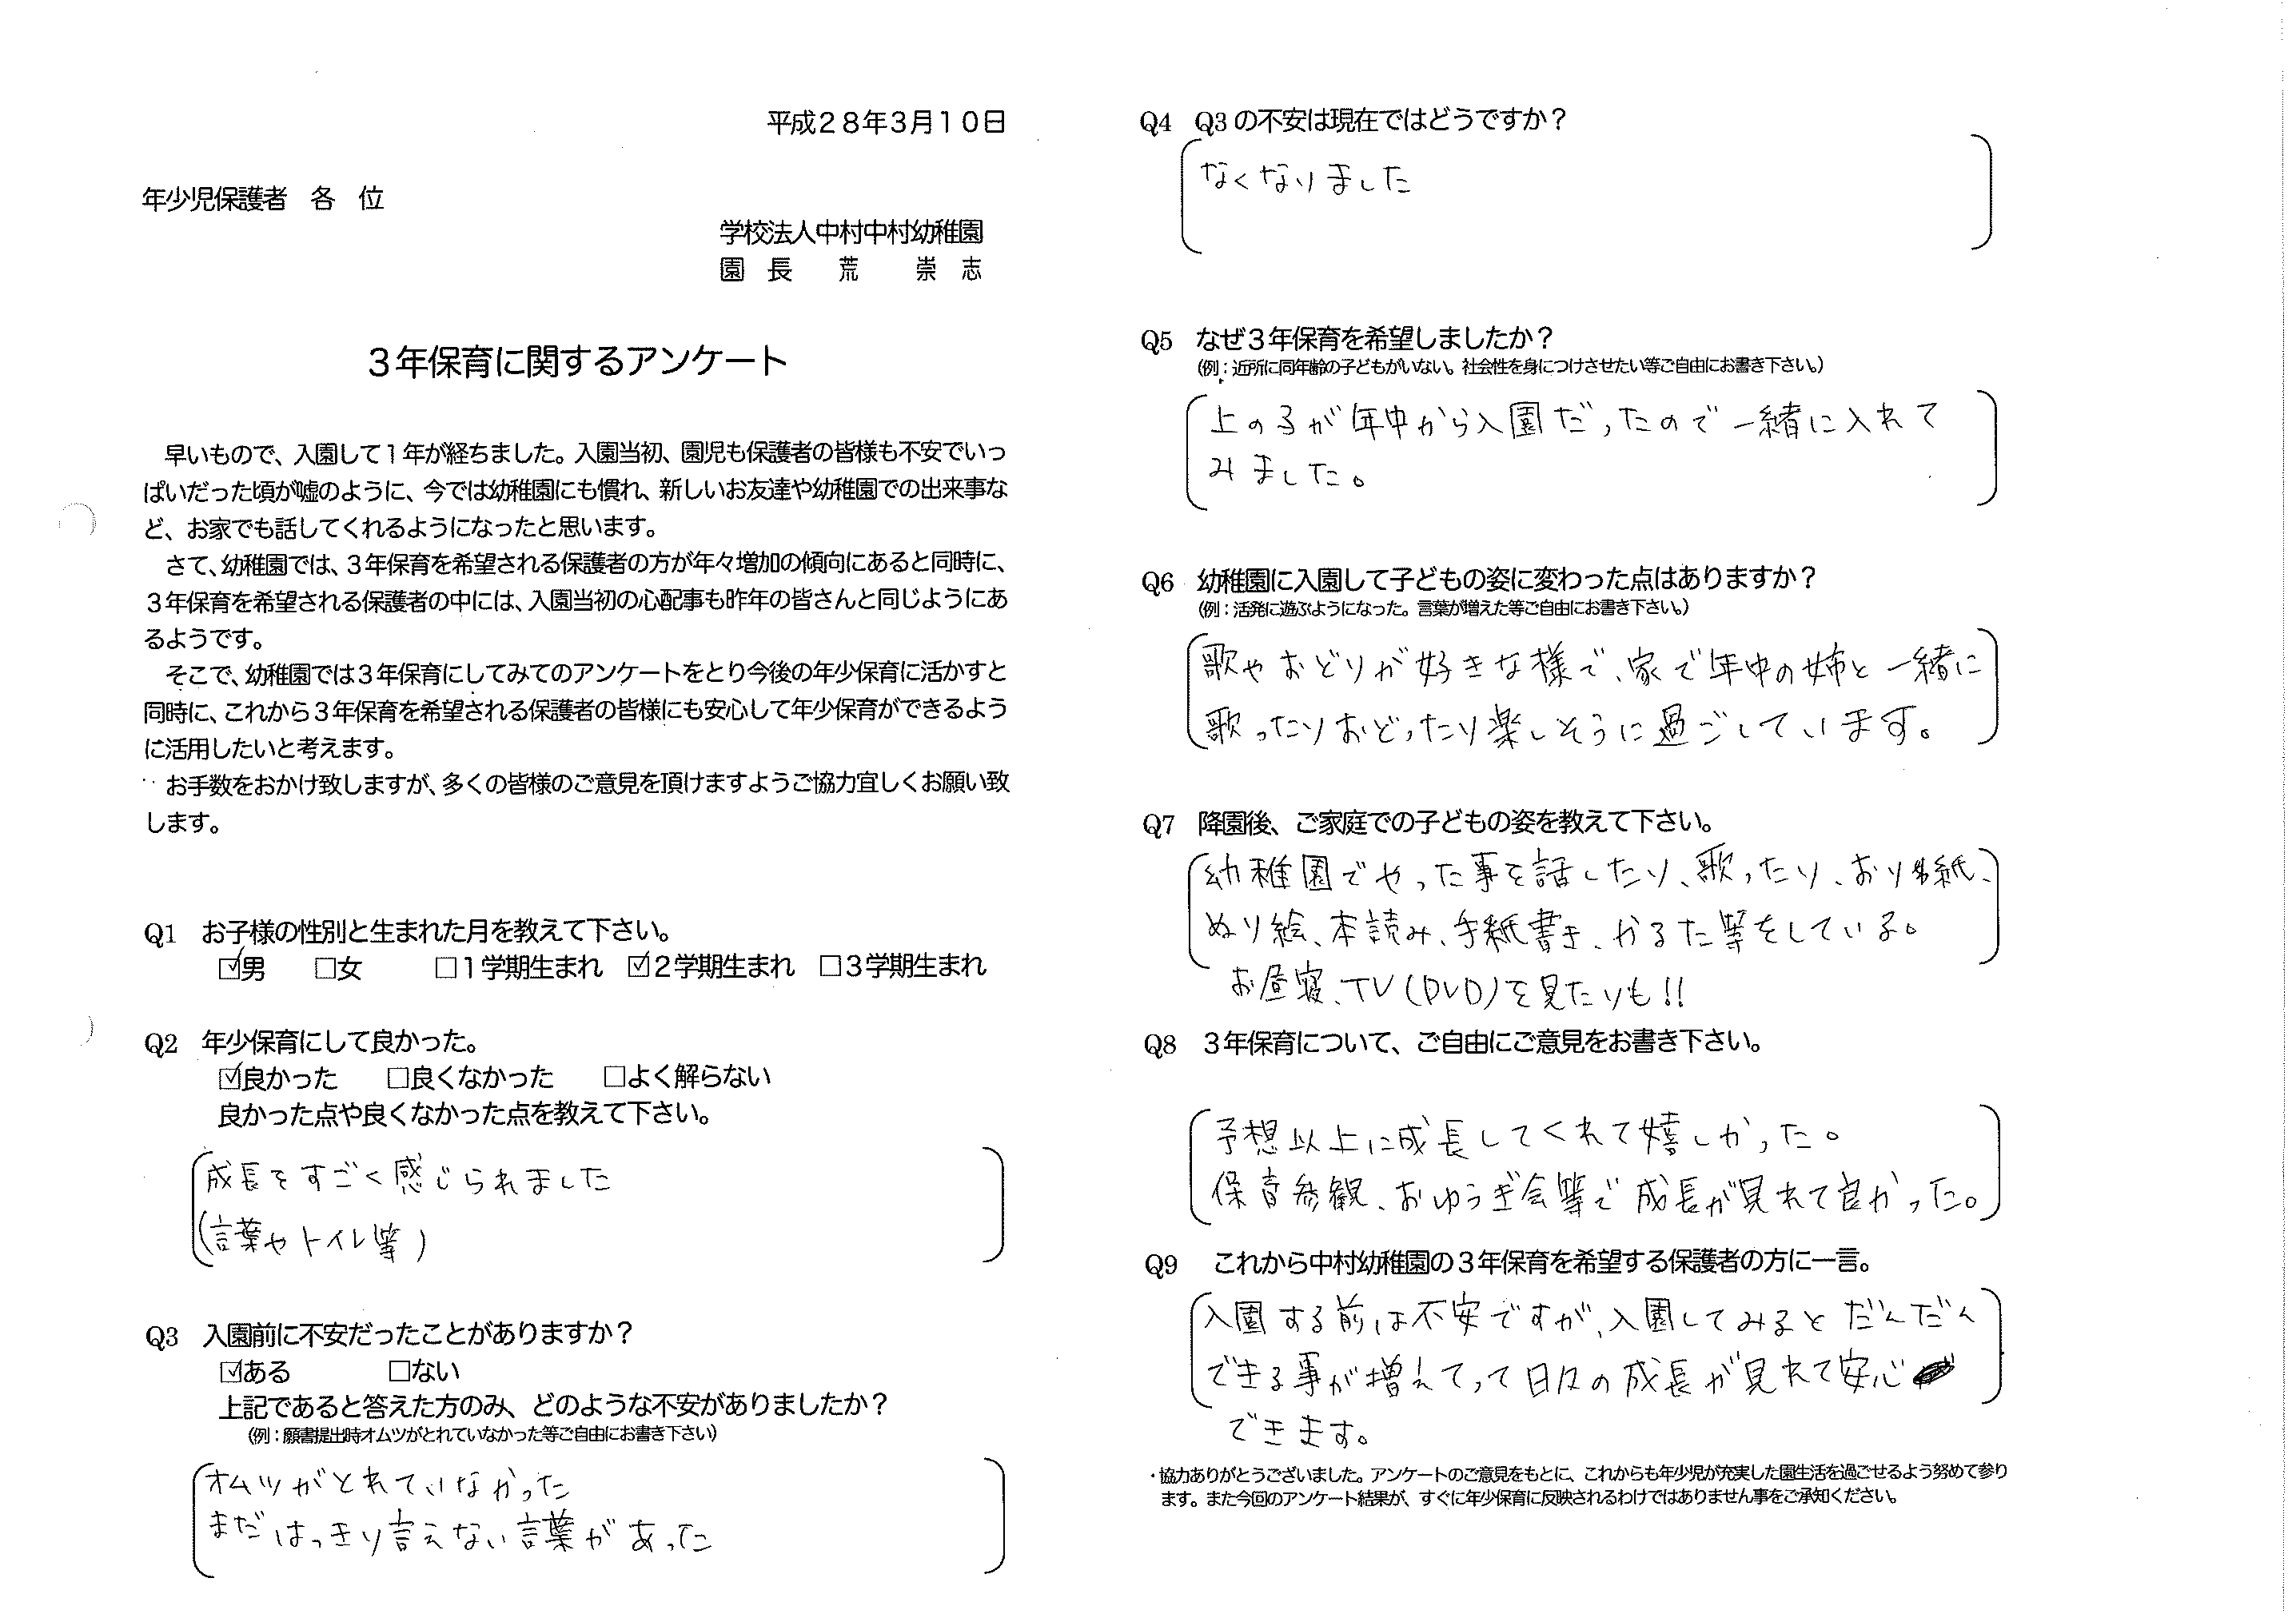 平成28年3月10日
年少児保護者 各 位
学校法人中村中村幼稚園
園 長 荒 崇 志
3年保育に関するアンケート
早いもので、入園して1年が経ちました。入園当初、園児も保護者の皆様も不安でいっ
ぱいだった頃が嘘のように、今では幼稚園にも慣れ、新しいお友達や幼稚園での出来事な
ど、お家でも話してくれるようになったと思います。
さて、幼稚園では、3年保育を希望される保護者の方が年々増加の傾向にあると同時に、
3年保育を希望される保護者の中には、入園当初の心配事も昨年の皆さんと同じようにあ
るようです。
そこで、幼稚園では3年保育にしてみてのアンケートをとり今後の年少保育に活かすと
同時に、これから3年保育を希望される保護者の皆様にも安心して年少保育ができるよう
に活用したいと考えます。
お手数をおかけ致しますが、多くの皆様のご意見を頂けますようご協力宜しくお願い致
します。
Q1 お子様の性別と生まれた月を教えて下さい。
☑男 □女 □1学期生まれ ☑2学期生まれ □3学期生まれ
Q2 年少保育にして良かった。
☑良かった □良くなかった □よく解らない
良かった点や良くなかった点を教えて下さい。
成長をすごく感じられました
(言葉やトイレ等)
Q3 入園前に不安だったことがありますか?
☑ある □ない
上記であると答えた方のみ、どのような不安がありましたか?
(例:願書提出時オムツがとれていなかった等ご自由にお書き下さい)
オムツがとれていなかった
まだはっきり言えない言葉があった
Q4 Q3の不安は現在ではどうですか?
なくなりました
Q5 なぜ3年保育を希望しましたか?
(例:近所に同年齢の子どもがいない。社会性を身につけさせたい等ご自由にお書き下さい。)
上の子が年中から入園だったので一緒に入れて
みました。
Q6 幼稚園に入園して子どもの姿に変わった点はありますか?
(例:活発に遊ぶようになった。言葉が増えた等ご自由にお書き下さい。)
歌やおどりが好きな様で、家で年中の姉と一緒に
歌ったりおどったり楽しそうに過ごしています。
Q7 降園後、ご家庭での子どもの姿を教えて下さい。
幼稚園でやった事を話したり、歌ったり、おり紙、
ぬり絵、本読み、手紙書き、かるた等をしている。
お昼寝、TV(DVD)を見たりも!!
Q8 3年保育について、ご自由にご意見をお書き下さい。
予想以上に成長してくれて嬉しかった。
保育参観、おゆうぎ会等で成長が見れて良かった。
Q9 これから中村幼稚園の3年保育を希望する保護者の方に一言。
入園する前は不安ですが、入園してみるとだんだん
できる事が増えてって日々の成長が見れて安心
できます。
・協力ありがとうございました。アンケートのご意見をもとに、これからも年少児が充実した園生活を過ごせるよう努めて参り
ます。また今回のアンケート結果が、すぐに年少保育に反映されるわけではありません事をご承知ください。